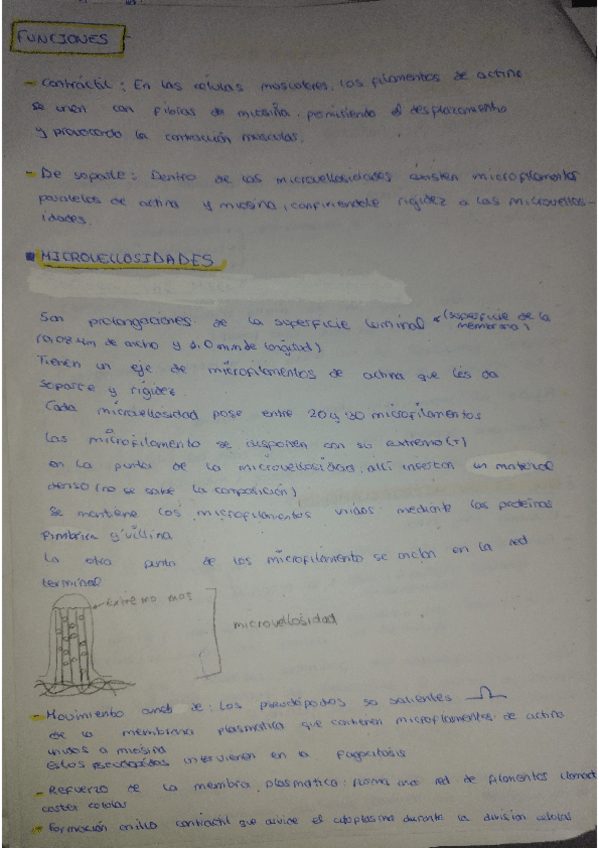 FUNCIONES
- Contráctil: En las células musculares, los filamentos de actina
se unen con fibras de miosina, permitiendo el desplazamiento
y provocando la contracción muscular.
- De soporte: Dentro de las microvellosidades existen microfilamentos
paralelos de actina y miosina, confiriendole rigidez a las microvellos-
idades.
MICROVELLOSIDADES
Son prolongaciones de la superficie luminal (superficie de la
membrana)
de ancho y de longitud)
Tienen un eje de microfilamentos de actina que les da
soporte y rigidez.
Cada microvellosidad pose entre 20 y 30 microfilamentos
Las microfilamento se disponen con su extremo (+)
en la punta de la microvellosidad, allí insertan un material
denso (no se sabe la composición)
Se mantiene los microfilamentos unidos mediante las proteínas
fimbrina y villina
La otra punta de los microfilamento se anclan en la red
terminal
extremo mas
microvellosidad
- Movimiento de: Los pseudópodos so salientes
de la membrana plasmatica que contienen microfilamentos de actina
unidos a miosina
estos pseudopodos intervienen en la fagocitosis
- Refuerzo de la membra plasmatica: forma una red de filamentos
celular
- Formación anillo contráctil que divide el citoplasma durante la división celular